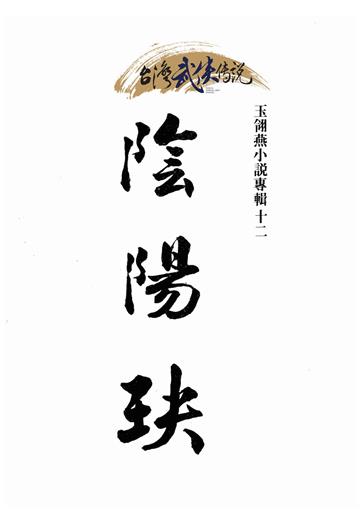 台灣武俠傳說
玉翎燕小説專輯 十二
陰陽玦